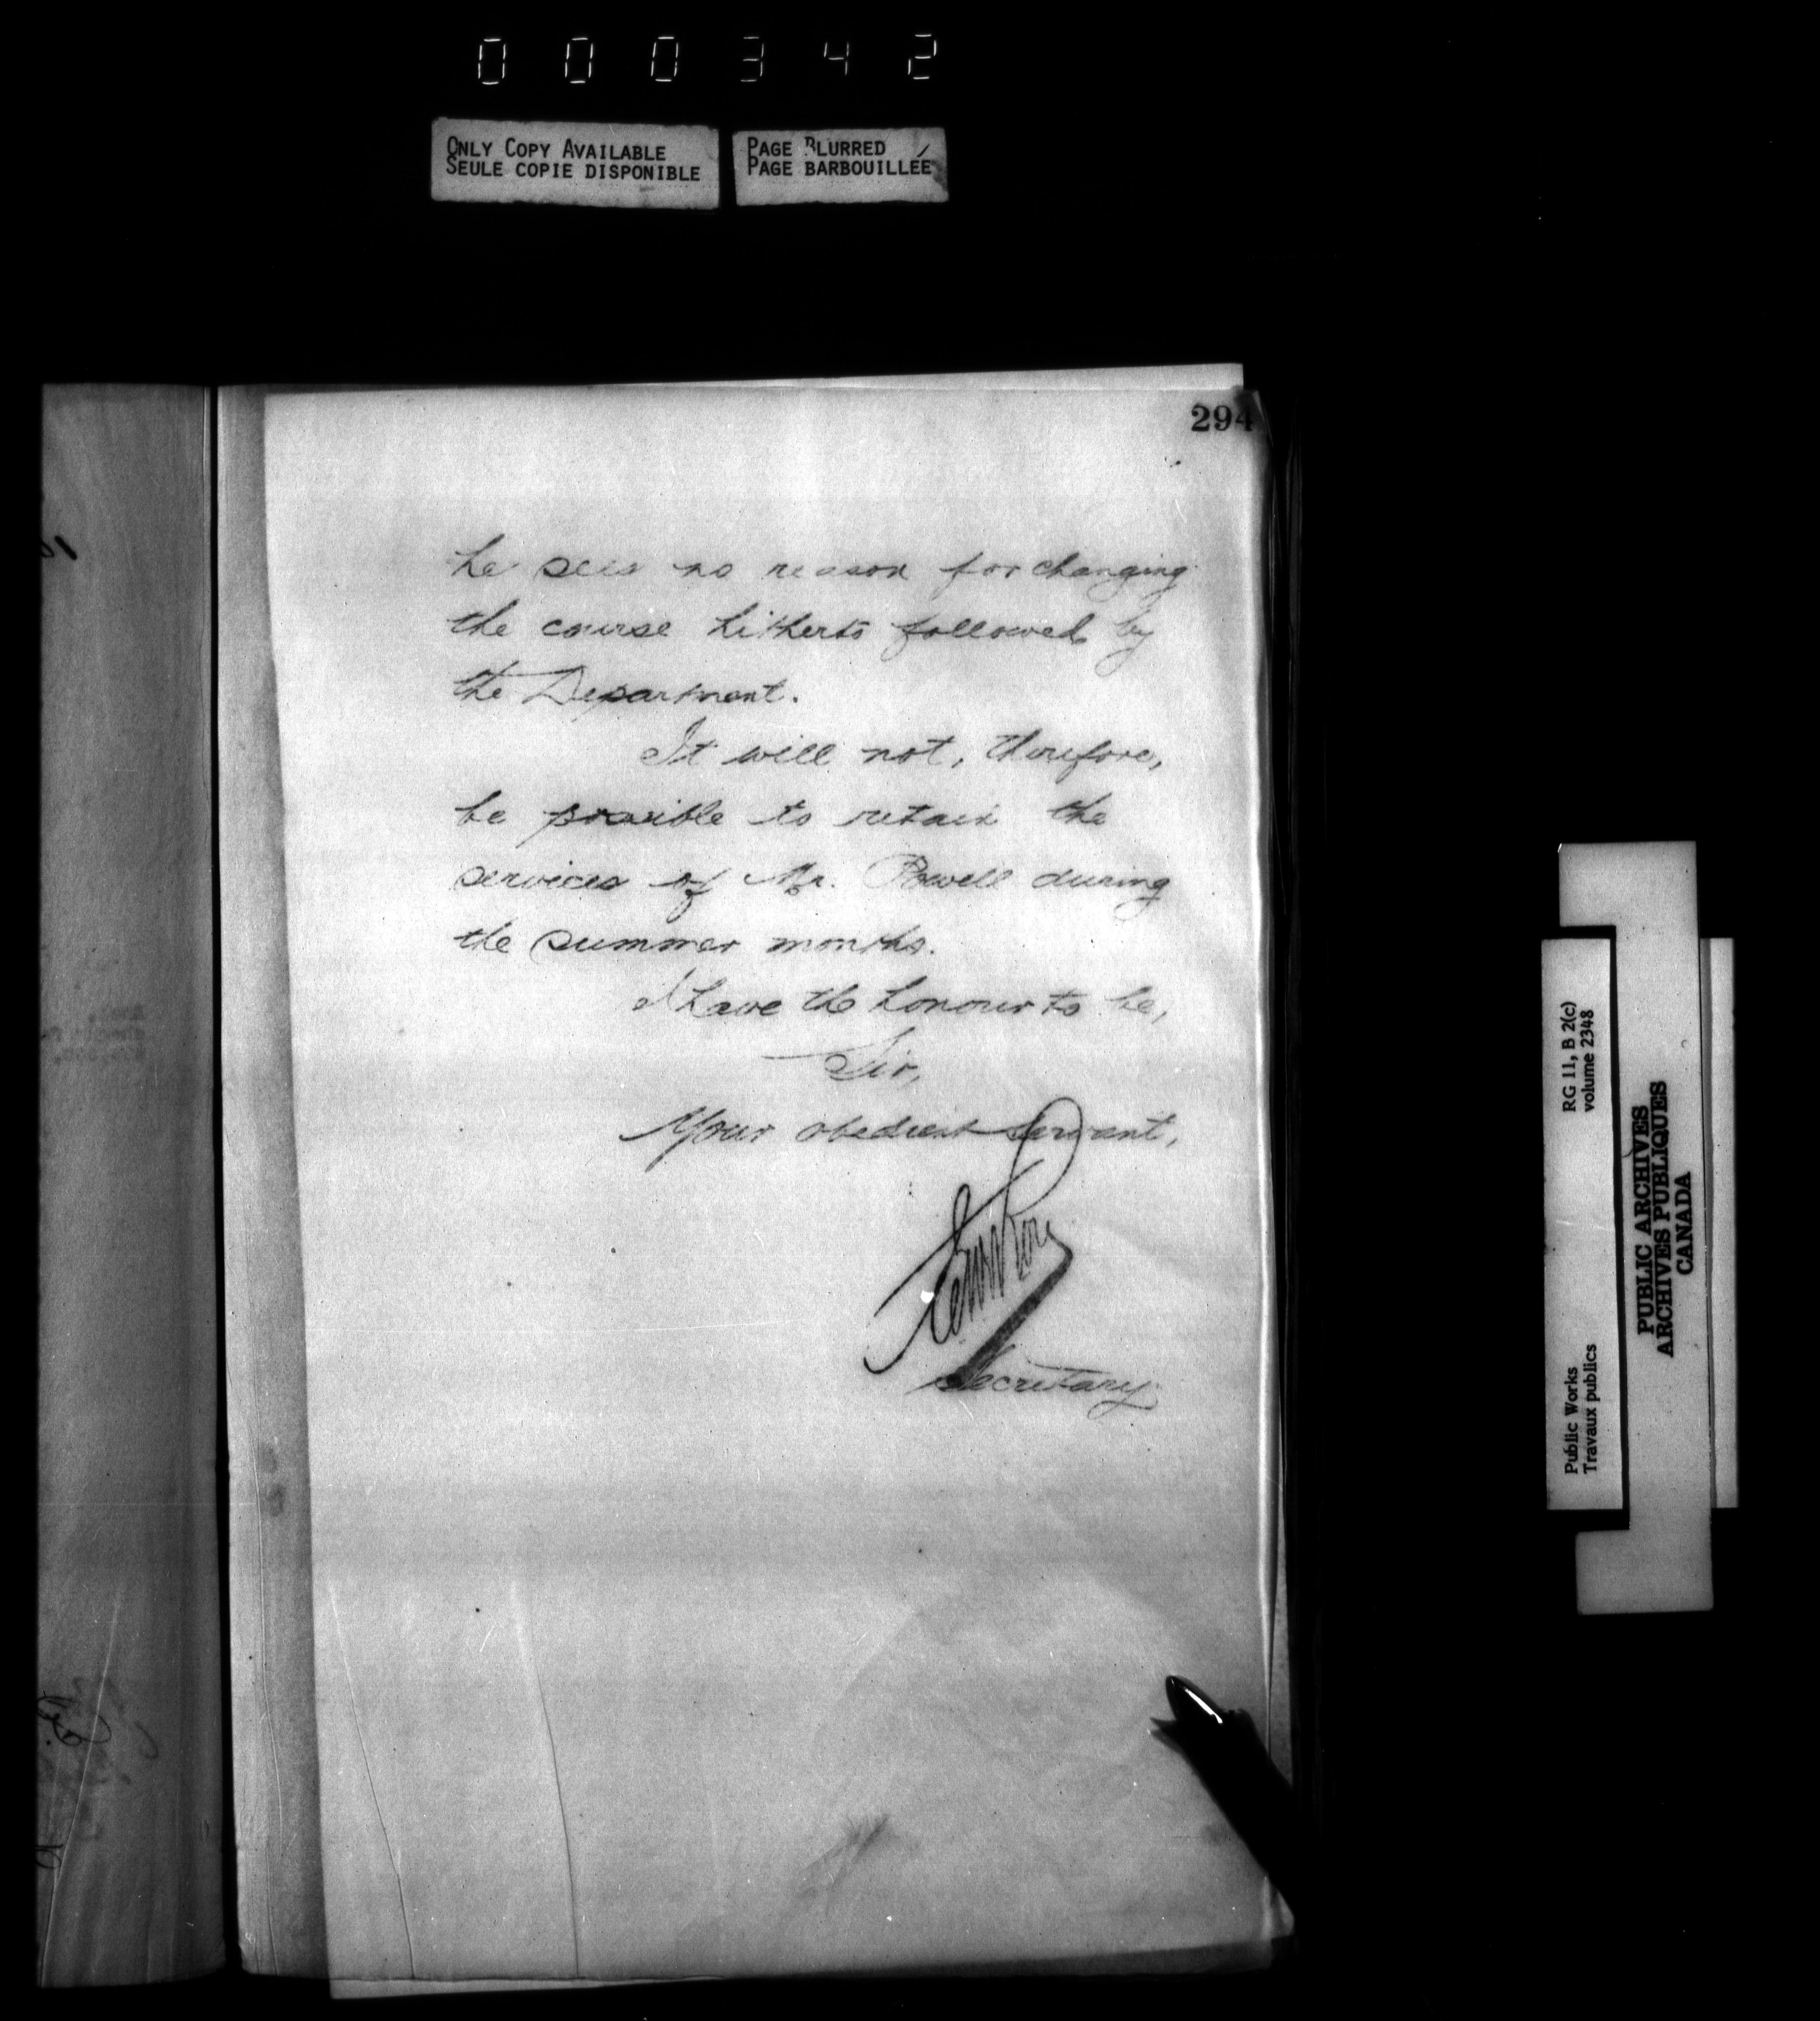 000342
ONLY COPY AVAILABLE
SEULE COPIE DISPONIBLE
PAGE BLURRED
PAGE BARBOUILLÉE
294
he sees no reason for changing
the course hitherto followed by
the Department.
It will not, therefore,
be possible to retain the
services of Mr. Powell during
the summer months.
I have the honour to be,
Sir,
Your obedient servant,
Secretary
RG 11, B 2(c)
volume 2348
Public Works
Travaux publics
PUBLIC ARCHIVES
ARCHIVES PUBLIQUES
CANADA